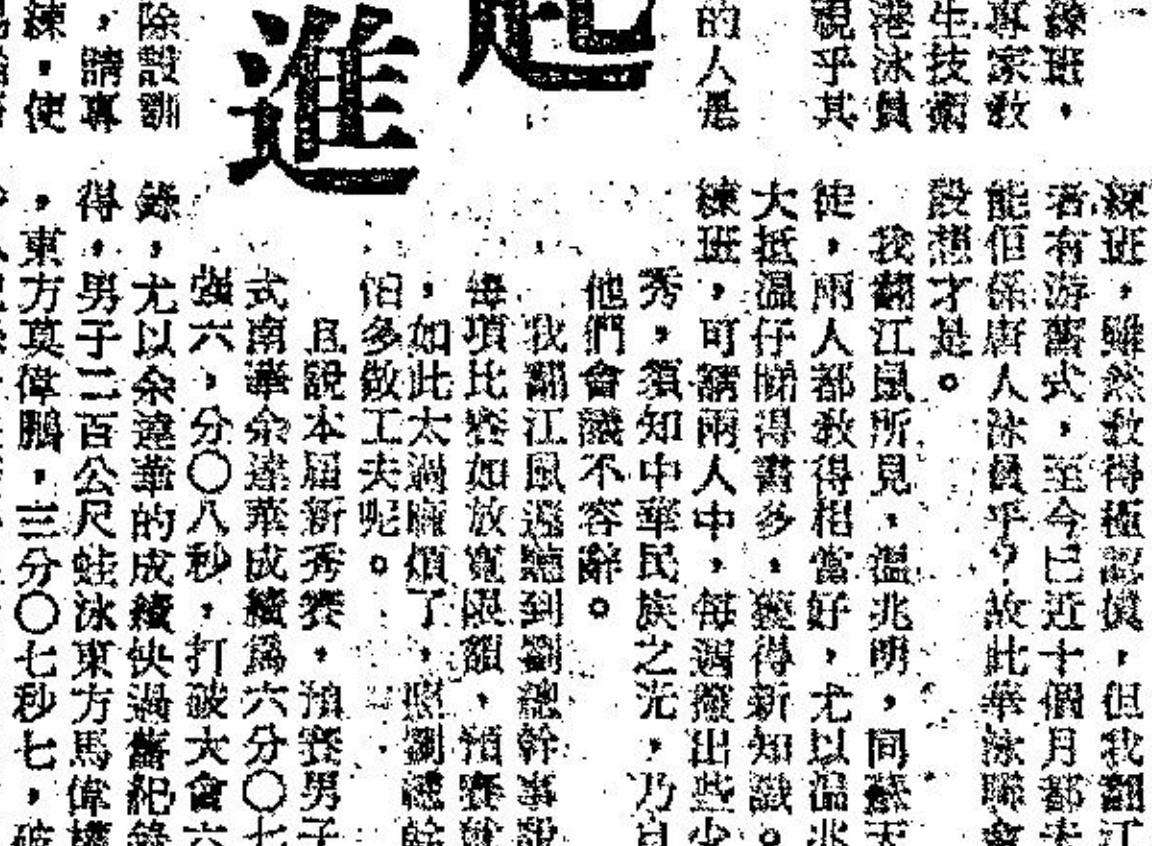 練班，
專家教
生技術
港泳員
視乎其
的人是
起
進
除設訓
，請專
練，使
練班，雖然教得極認真，但我翻江
者有游舊式，至今已近十個月都未
能佢係唐人泳員乎？故此華泳聯會
段想才是。
我翻江鼠所見，溫兆明，同蘇天
徒，兩人都教得相當好，尤以溫兆
大抵溫仔睇得書多，獲得新知識。
練班，可謂兩人中，每遇撥出些少
秀，須知中華民族之光，乃自
他們會議不容辭。
我翻江鼠還聽到劉總幹事說
每項比賽如放寬限額，預賽就
，如此太過麻煩了，照劉總幹
怕多做工夫呢。
且說本屆新秀賽，預賽男子
式南華余達華成績為六分〇七
強六，分〇八秒，打破大會六
錄，尤以余達華的成績快過舊紀錄
得，男子二百公尺蛙泳東方馬偉權
，東方莫偉鵬，三分〇七秒七，破